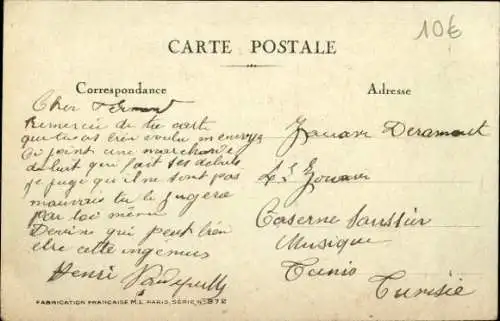 10€
CARTE POSTALE
Correspondance
Adresse
Cher
Remercie de ta carte
que tu as bien voulu m'envoyé
Ci joint une marchande
de lait qui fait ses debuts
je juge qu'il ne sont pas
mauvais tu le jugera
par toi même
Devine qui peut bien
etre cette ingénue
Henri
Zouave Deramont
4e Zouaves
Caserne Saussier
Musique
Tunis
Tunisie
FABRICATION FRANÇAISE M.L. PARIS, SÉRIE No 872